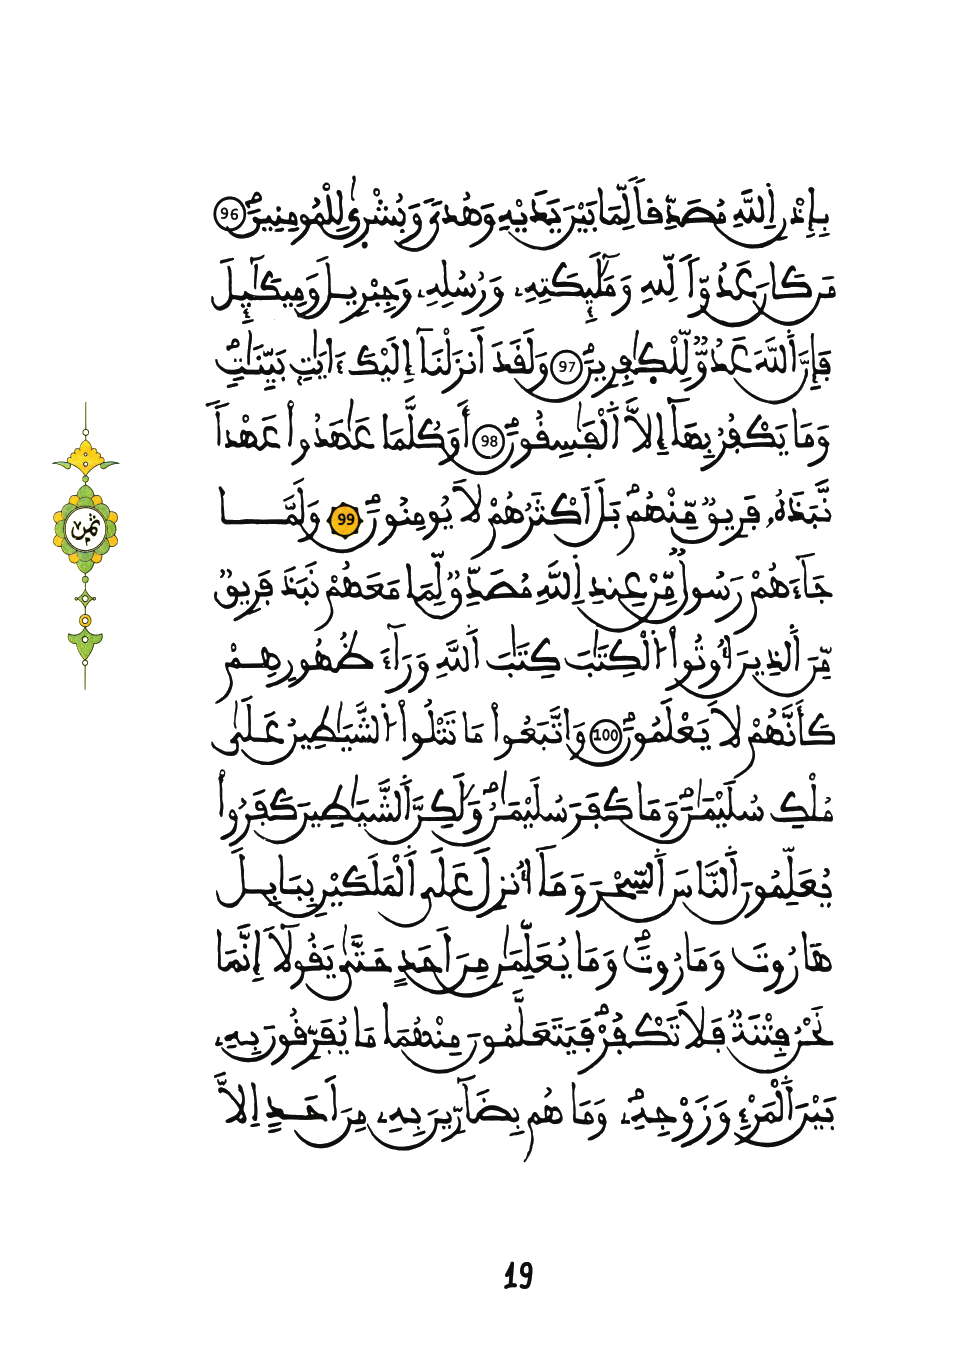 بِإِذْنِ اِ۬للَّهِ مُصَدِّقاٗ لِّمَا بَيْنَ يَدَيْهِ وَهُديٗ وَبُشْر۪يٰ لِلْمُومِنِينَۖ 96
مَن كَانَ عَدُوّاٗ لِّلهِ وَمَلَٰٓئِكَتِهِۦ وَرُسُلِهِۦ وَجِبْرِيلَ وَمِيكَٰٓئِلَ
فَإِنَّ اَ۬للَّهَ عَدُوّٞ لِّلْكٰ۪فِرِينَۖ 97 وَلَقَدَ اَنزَلْنَآ إِلَيْكَ ءَايَٰتِۢ بَيِّنَٰتٖۖ
وَمَا يَكْفُرُ بِهَآ إِلَّا اَ۬لْفَٰسِقُونَۖ 98 أَوَكُلَّمَا عَٰهَدُواْ عَهْداٗ
نَّبَذَهُۥ فَرِيقٞ مِّنْهُمۖ بَلَ اَكْثَرُهُمْ لَا يُومِنُونَۖ 99 وَلَمَّا
جَآءَهُمْ رَسُولٞ مِّنْ عِندِ اِ۬للَّهِ مُصَدِّقٞ لِّمَا مَعَهُمْ نَبَذَ فَرِيقٞ
مِّنَ اَ۬لذِينَ أُوتُواْ اُ۬لْكِتَٰبَ كِتَٰبَ اَ۬للَّهِ وَرَآءَ ظُهُورِهِمْ
كَأَنَّهُمْ لَا يَعْلَمُونَۖ 100 وَاتَّبَعُواْ مَا تَتْلُواْ اُ۬لشَّيَٰطِينُ عَلَىٰ
مُلْكِ سُلَيْمَٰنَۖ وَمَا كَفَرَ سُلَيْمَٰنُۖ وَلَٰكِنَّ اَ۬لشَّيَٰطِينَ كَفَرُواْ
يُعَلِّمُونَ اَ۬لنَّاسَ اَ۬لسِّحْرَ وَمَآ أُنزِلَ عَلَى اَ۬لْمَلَكَيْنِ بِبَابِلَ
هَٰرُوتَ وَمَٰرُوتَۖ وَمَا يُعَلِّمَٰنِ مِنَ اَحَدٍ حَتَّىٰ يَقُولَآ إِنَّمَا
نَحْنُ فِتْنَةٞ فَلَا تَكْفُرْۖ فَيَتَعَلَّمُونَ مِنْهُمَا مَا يُفَرِّقُونَ بِهِۦ
بَيْنَ اَ۬لْمَرْءِ وَزَوْجِهِۦۖ وَمَا هُم بِضَآرِّينَ بِهِۦ مِنَ اَحَدٍ اِلَّا
ثمن
19